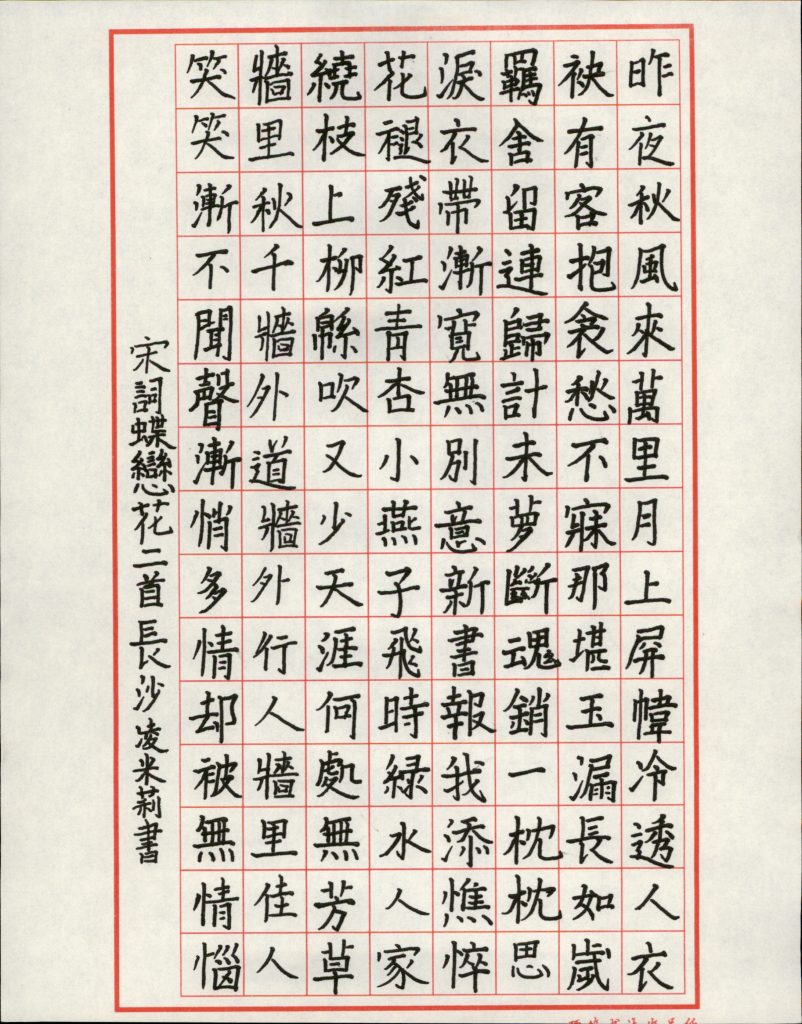 昨夜秋風來萬里月上屏幃冷透人衣
袂有客抱衾愁不寐那堪玉漏長如歲
羈舍留連歸計未夢斷魂銷一枕枕思
淚衣帶漸寬無別意新書報我添憔悴
花褪殘紅青杏小燕子飛時綠水人家
繞枝上柳緜吹又少天涯何處無芳草
牆里秋千牆外道牆外行人牆里佳人
笑笑漸不聞聲漸悄多情却被無情惱
宋詞蝶戀花二首長沙凌米莉書